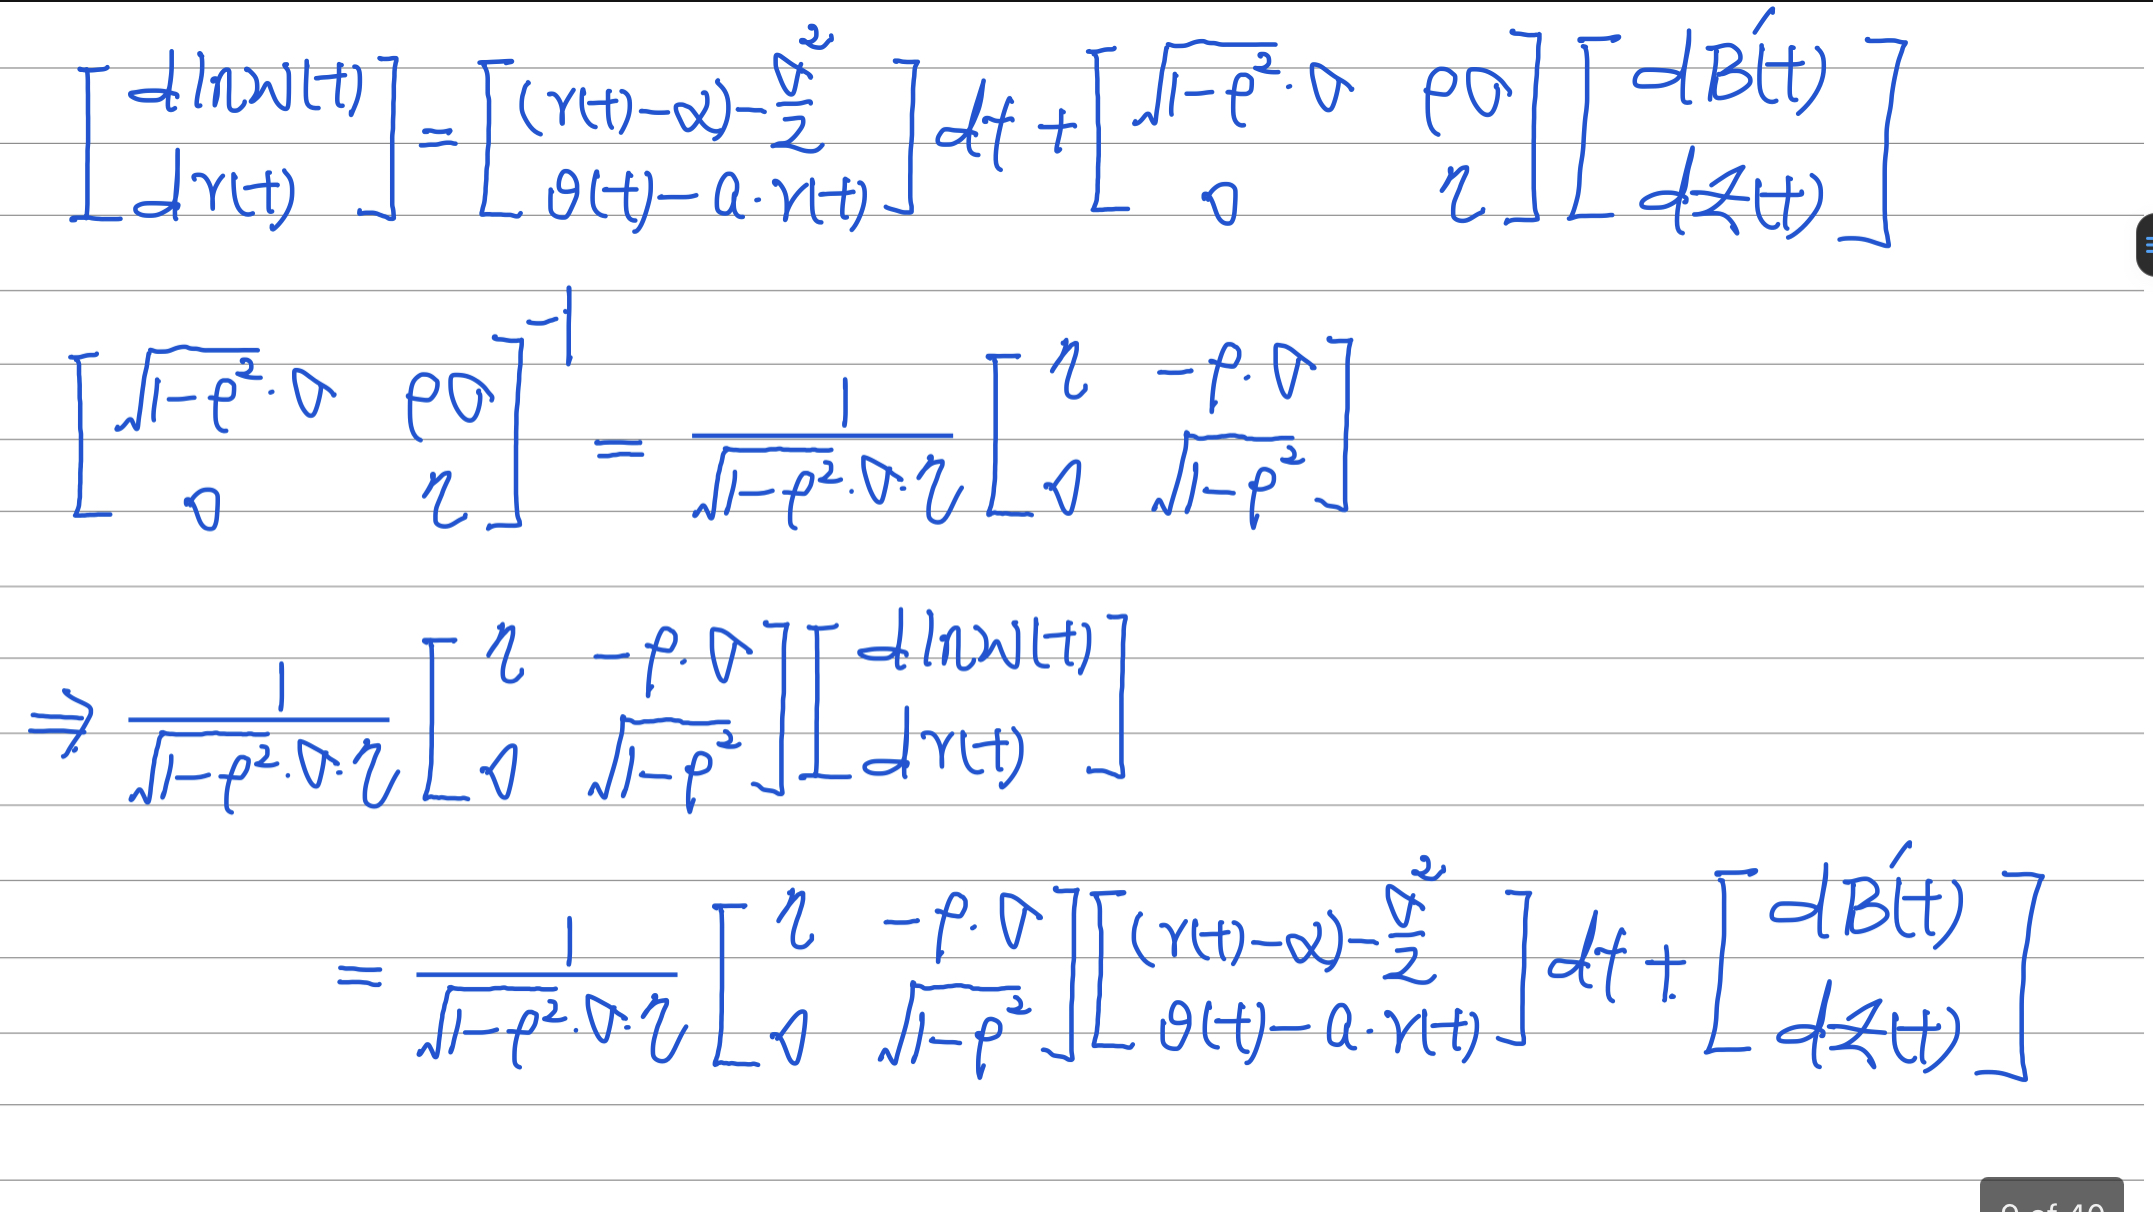 [d ln w(t); d r(t)] = [(r(t)-α)-σ²/2; θ(t)-a·r(t)] dt + [√(1-ρ²)·σ, ρσ; 0, η] [dB′(t); dZ(t)]
[√(1-ρ²)·σ, ρσ; 0, η]⁻¹ = 1/(√(1-ρ²)·σ·η) [η, -ρ·σ; 0, √(1-ρ²)]
⇒ 1/(√(1-ρ²)·σ·η) [η, -ρ·σ; 0, √(1-ρ²)] [d ln w(t); d r(t)]
= 1/(√(1-ρ²)·σ·η) [η, -ρ·σ; 0, √(1-ρ²)] [(r(t)-α)-σ²/2; θ(t)-a·r(t)] dt + [dB′(t); dZ(t)]